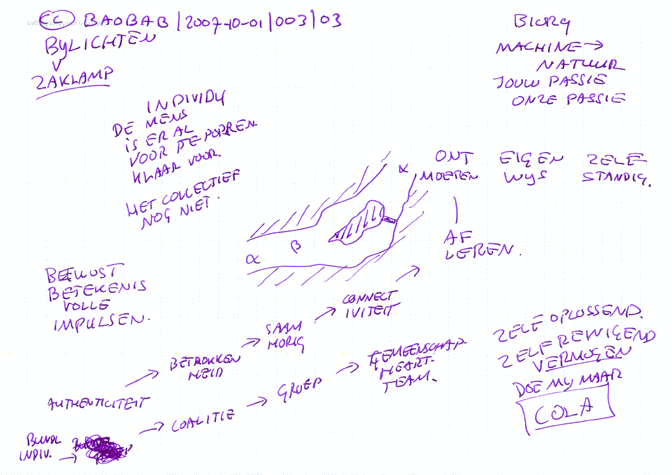 CC BAOBAB | 2007-10-01 | 003 | 03
BIJLICHTEN
V
ZAKLAMP
BIORG
MACHINE →
NATUUR
JOUW PASSIE
ONZE PASSIE
INDIVIDU
DE MENS
IS ER AL
VOOR
KLAAR VOOR.
HET COLLECTIEF
NOG NIET.
α
ONT
MOEREN
EIGEN
WIJS
ZELF
STANDIG.
α
β
AF
LEREN.
BEWUST
BETEKENIS
VOLLE
IMPULSEN.
AUTHENTICITEIT →
BETROKKEN
HEID →
SAAM
HORIG →
CONNECT
IVITEIT →
BUNDL
INDIV. →
→ COALITIE
→ GROEP
→ GEMEENSCHAP
HEART-
TEAM.
ZELF OPLOSSEND.
ZELF REINIGEND
VERMOGEN
DOE MIJ MAAR
COLA